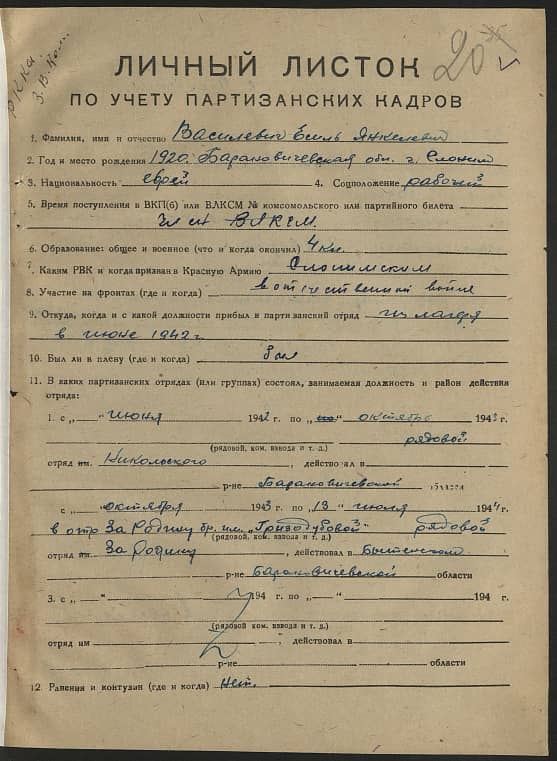 РККА.
20
ЛИЧНЫЙ ЛИСТОК
ПО УЧЕТУ ПАРТИЗАНСКИХ КАДРОВ
1. Фамилия, имя и отчество Василевич Есель Янкелевич
2. Год и место рождения 1920, Барановичевская обл. г. Слоним
3. Национальность еврей 4. Соцположение рабочий
5. Время поступления в ВКП(б) или ВЛКСМ № комсомольского или партийного билета
Чл ВЛКСМ.
6. Образование: общее и военное (что и когда окончил) 4 кл.
7. Каким РВК и когда признан в Красную Армию Слонимским
8. Участие на фронтах (где и когда) в отечественной войне
9. Откуда, когда и с какой должности прибыл в партизанский отряд из лагеря
в июне 1942 г.
10. Был ли в плену (где и когда) был
11. В каких партизанских отрядах (или группах) состоял, занимаемая должность и район действия
отряда:
1. с „ “ июня 1942 г. по „ “ октябрь 1943 г.
рядовой
(рядовой, ком. взвода и т. д.)
отряд им. Никольского, действовал в
р-не Барановичевской области
с „ “ октября 1943 г. по „13“ июля 1944 г.
в отр За Родину бр. им. „Гризодубовой“ рядовой
(рядовой, ком. взвода и т. д.)
отряд им. За Родину, действовал в Бытенском
р-не Барановичевской области
3. с „ “ 194 г. по „ “ 194 г.
(рядовой ком. взвода и т. д.)
отряд им , действовал в
р-не области
12. Ранения и контузии (где и когда) Нет.